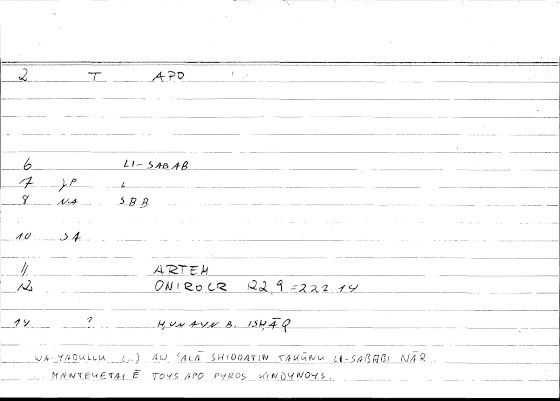 2 T APO
6 LI-SABAB
7 JP L
8 NA SBB
10 SA
11 ARTEM
12 ONIROCR 122,9 = 222.14
14 ? ḤUNAYN B. ISḤĀQ
WA-YADULLU (..) AW ʿALĀ SHIDDATIN TAKŪNU LI-SABABI NĀR
MANTEYETAI Ē TOYS APO PYROS KINDYNOYS.